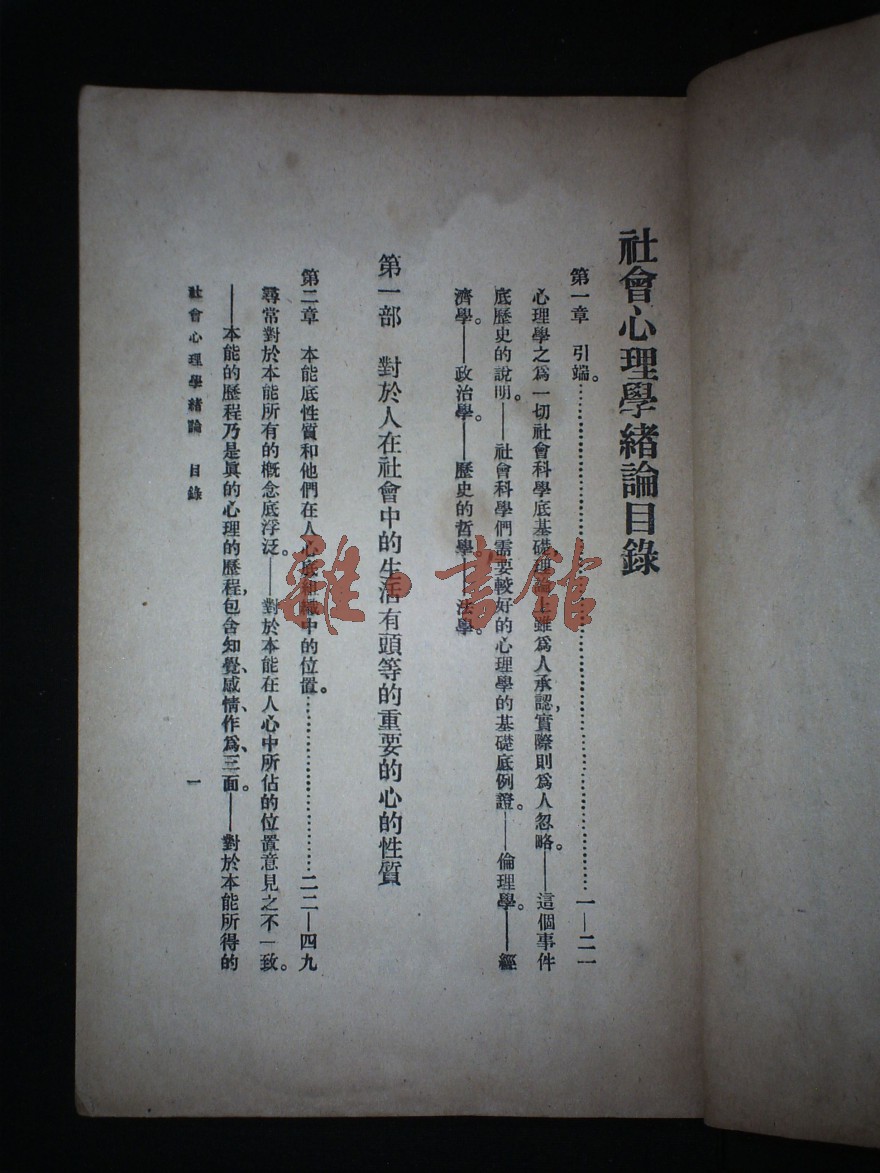 社會心理學緒論目錄
第一章　引端。……………………………………一—二一
心理學之爲一切社會科學底基礎，理論上雖爲人承認，實際則爲人忽略。——這個事件
底歷史的說明。——社會科學們需要較好的心理學的基礎底例證。——倫理學。——經
濟學。——政治學。——歷史的哲學。——法學。
第一部　對於人在社會中的生活有頭等的重要的心的性質
第二章　本能底性質和他們在人心底組織中的位置。……………………二二—四九
尋常對於本能所有的概念底浮泛。——對於本能在人心中所佔的位置意見之不一致。
——本能的歷程乃是眞的心理的歷程，包含知覺、感情、作爲、三面。——對於本能所得的
社會心理學緒論　目錄
一
雜·書館